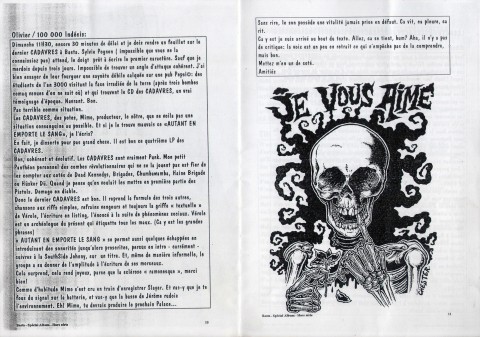 Olivier / 100 000 Indénis:
Dimanche 11H30, encore 30 minutes de délai et je dois rendre un feuillet sur le
dernier CADAVRES à Basta. Sylvie Pognon ( impossible que vous ne la
connaissiez pas) attend, le doigt prêt à écrire le premier caractère. Sauf que je
merdoie depuis trois jours. Impossible de trouver un angle d'attaque cohérent. J'ai
bien essayé de leur fourguer une soyotte débile calquée sur une pub Pepsi©: des
étudiants de l'an 3000 visitent la face irradiée de la terre (après trois bombes
venues on ne sait où) et qui trouvent le CD des CADAVRES, un vrai
témoignage d'époque. Marrant. Bon.
Pas terrible comme situation.
Les CADAVRES, des potes, Mimo, producteur, le nôtre, que ne voilà pas une
situation consanguine au possible. Et si je la trouve mauvais ce «AUTANT EN
EMPORTE LE SANG», je l'écris?
En fait, je disserte pour pas grand chose. Il est bon ce quatrième LP des
CADAVRES.
Bon, cohérent et évolutif. Les CADAVRES sont vraiment Punk. Mon petit
Panthéon personnel des combos révolutionnaires qui ne se la jouent pas est fier de
les compter aux cotés de Dead Kennedys, Brigades, Chumbawamba, Haine Brigade
ou Hüsker Dü. Quand je pense qu'on voulait les mettre en première partie des
Pistols. Damage on disait.
Dans le dernier CADAVRES est bon. Il reprend la formule des trois autres,
chansons aux riffs simples, refrains rageurs et toujours la griffe « textuelle »
de Vérole, l'écriture en listing, l'énoncé à la suite de phénomènes sociaux. Vérole
est un archéologue du présent qui étiquette tous les maux. (Ca y est les grandes
phrases)
« AUTANT EN EMPORTE LE SANG » se permet aussi quelques échappées en
introduisant des cassettes jusqu'alors proscrites, percus en intro - carrément -
cuivres à la SouthSide Johnny, sur un titre. Et, même de manière informelle, le
groupe a su donner de l'amplitude à l'écriture de ses morceaux.
Cela surprend, cela rend joyeux, parce que la colères « ramonesque », merci
bien!
Comme d'habitude Mimo s'est cru en train d'enregistrer Slayer. Et vas-y que je te
fous du signal sur la batterie, et vas-y que la basse de Jérôme rudoie
l'environnement. Eh! Mimo, tu devrais produire le prochain Palace...
Basta - Spécial Album - Hors série
10
Sans rire, le son possède une vitalité jamais prise en défaut. Ca vit, ca pleure, ca
rit.
Ca y est je suis arrivé au bout du texte. Allez, ca se tient, hum? Aka, il n'y a pas
de critique: la voix est un peu en retrait ce qui n'empêche pas de la comprendre,
mais bon.
Mettez m'en un de coté.
Amitiés
JE VOUS AIME
COASTER
Basta - Spécial Album - Hors série
11